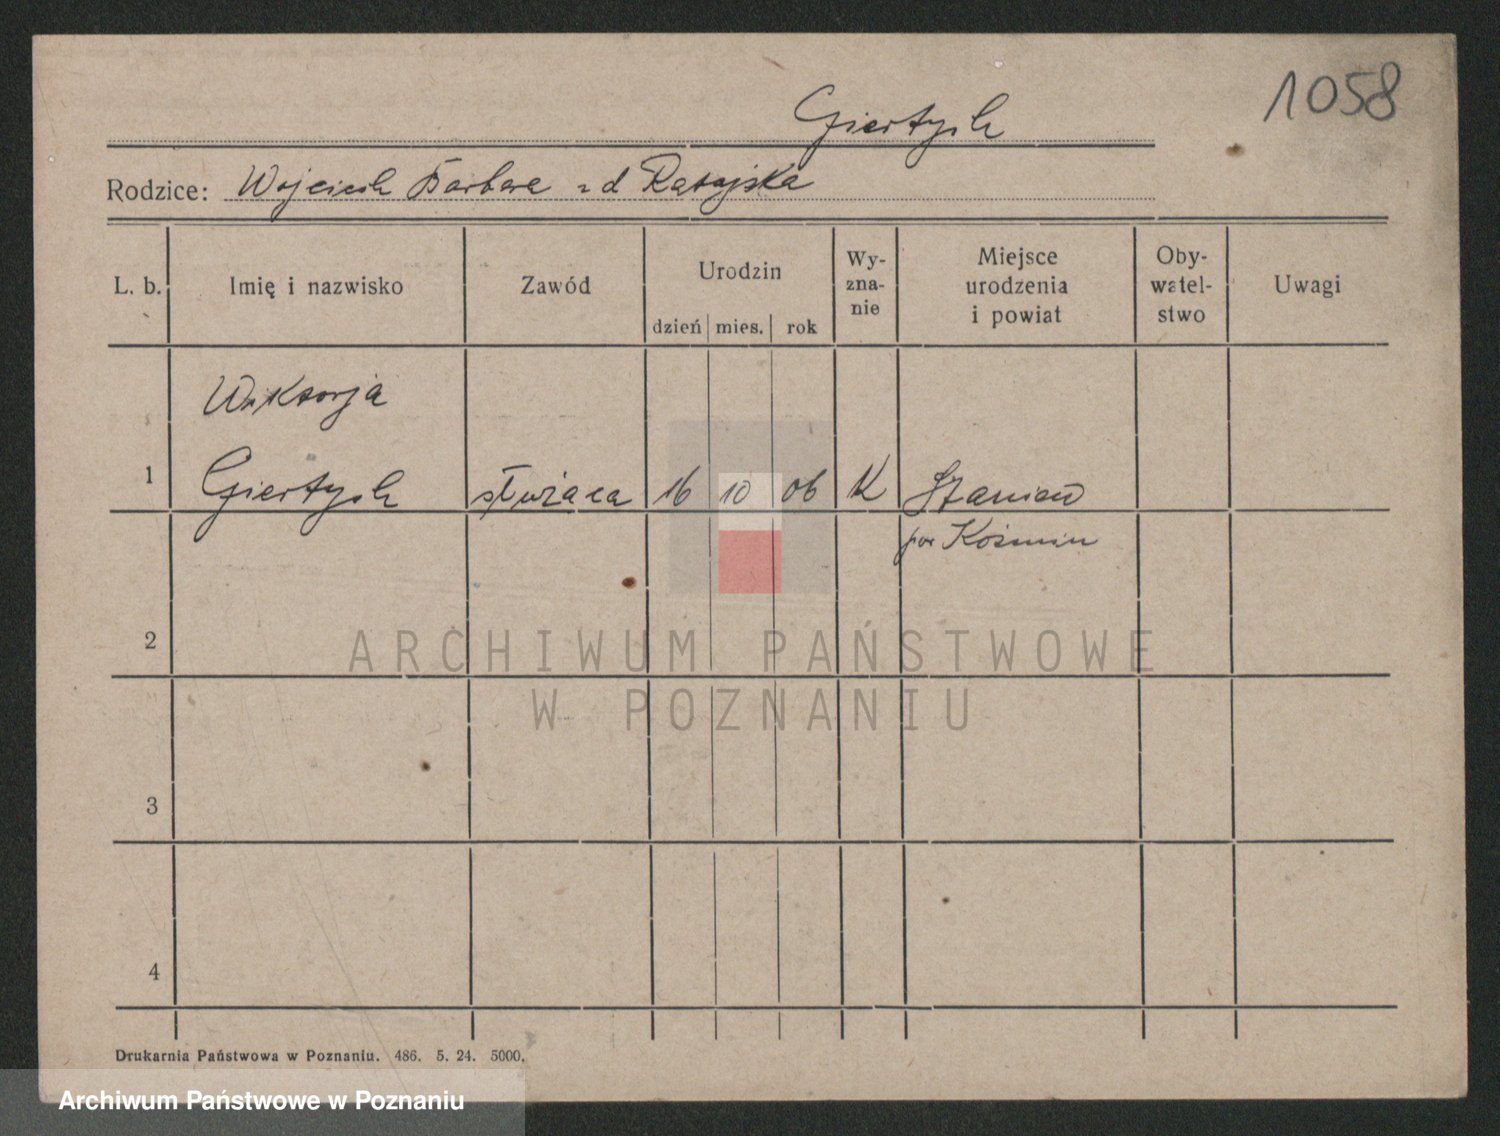 1058
Giertych
Rodzice: Wojciech Barbara z d Ratajska
L. b.
Imię i nazwisko
Zawód
Urodzin
dzień mies. rok
Wy-
zna-
nie
Miejsce
urodzenia
i powiat
Oby-
watel-
stwo
Uwagi
Wiktorja
1 Giertych służąca 16 10 06 K Staniew
pow Koźmin
2
ARCHIWUM PAŃSTWOWE
W POZNANIU
3
4
Drukarnia Państwowa w Poznaniu. 486. 5. 24. 5000.
Archiwum Państwowe w Poznaniu